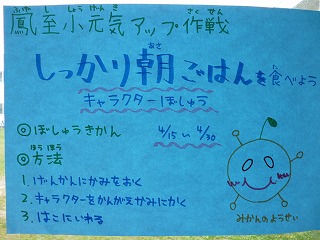 ふげ し しょう げん き さく せん
鳳至小元気アップ作戦
あさ た
しっかり朝ごはんを食べよう
キャラクターぼしゅう
◎ぼしゅうきかん 4/15 〜 4/30
ほうほう
◎方法
1. げんかんにかみをおく
2. キャラクターをかんがえかみにかく
3. はこにいれる
みかんのようせい